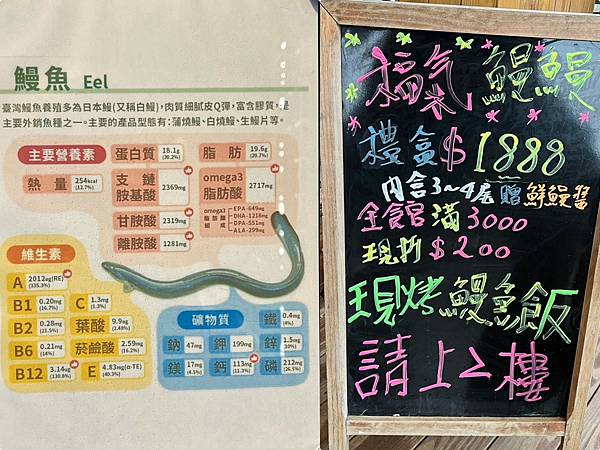 鰻魚 Eel
臺灣鰻魚養殖多為日本鰻(又稱白鰻),肉質細膩皮Q彈,富含膠質,是
主要外銷魚種之一。主要的產品型態有:蒲燒鰻、白燒鰻、生鰻片等。
主要營養素
蛋白質 18.1g (30.2%)
脂肪 19.6g (29.7%)
熱量 254kcal (12.7%)
支鏈胺基酸 2369mg
omega3脂肪酸 2717mg
甘胺酸 2319mg
omega3脂肪酸組成
EPA-649mg
DHA-1218mg
DPA-551mg
ALA-299mg
離胺酸 1281mg
維生素
A 2012ug(RE) (335.3%)
B1 0.20mg (16.7%)
C 1.3mg (1.3%)
B2 0.28mg (21.5%)
葉酸 9.9ug (2.48%)
B6 0.21mg (14%)
菸鹼酸 2.59mg (16.2%)
B12 3.14ug (130.8%)
E 4.83mg(α-TE) (40.3%)
礦物質
鐵 0.4mg (4%)
鈉 47mg
鉀 199mg
鋅 1.5mg (10%)
鎂 17mg (4.5%)
鈣 113mg (11.3%)
磷 212mg (26.5%)
福氣鰻鰻
禮盒$1888
內含3~4尾 贈鮮鰻醬
全館滿3000
現折$200
現烤鰻魚飯
請上2樓